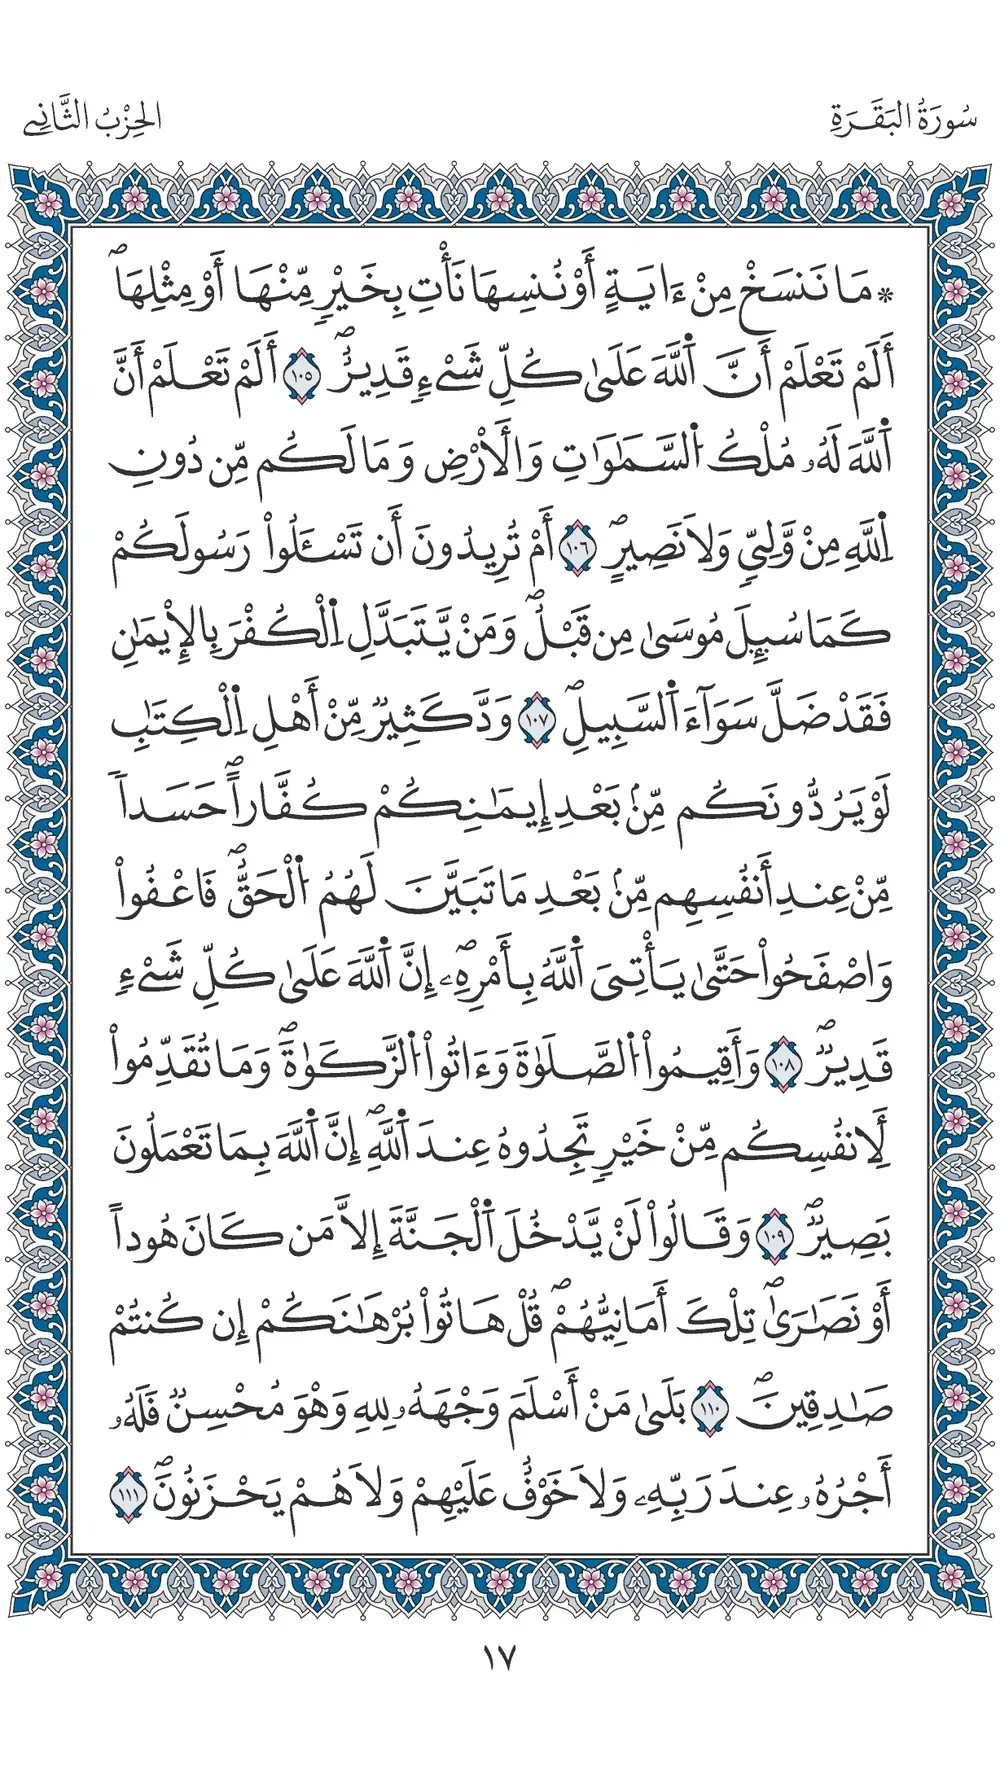 سُورَةُ الْبَقَرَةِ
الْحِزْبُ الثَّانِي
* مَا نَنسَخْ مِنْ ءَايَةٍ أَوْ نُنسِهَا نَأْتِ بِخَيْرٖ مِّنْهَا أَوْ مِثْلِهَاۖ
أَلَمْ تَعْلَمْ أَنَّ اَ۬للَّهَ عَلَىٰ كُلِّ شَےْءٖ قَدِيرٌۖ ١٠٥ أَلَمْ تَعْلَمْ أَنَّ
اَ۬للَّهَ لَهُۥ مُلْكُ اُ۬لسَّمَٰوَٰتِ وَالَارْضِ وَمَا لَكُم مِّن دُونِ
اِ۬للَّهِ مِنْ وَّلِيّٖ وَلَا نَصِيرٍۖ ١٠٦ أَمْ تُرِيدُونَ أَن تَسْـَٔلُواْ رَسُولَكُمْ
كَمَا سُئِلَ مُوسَىٰ مِن قَبْلُۖ وَمَنْ يَّتَبَدَّلِ اِ۬لْكُفْرَ بِالِايمَٰنِ
فَقَدْ ضَلَّ سَوَآءَ اَ۬لسَّبِيلِۖ ١٠٧ وَدَّ كَثِيرٞ مِّنْ أَهْلِ اِ۬لْكِتَٰبِ
لَوْ يَرُدُّونَكُم مِّنۢ بَعْدِ إِيمَٰنِكُمْ كُفَّاراًۖ حَسَداٗ
مِّنْ عِندِ أَنفُسِهِم مِّنۢ بَعْدِ مَا تَبَيَّنَ لَهُمُ اُ۬لْحَقُّۖ فَاعْفُواْ
وَاصْفَحُواْ حَتَّىٰ يَأْتِىَ اَ۬للَّهُ بِأَمْرِهِۦۖ إِنَّ اَ۬للَّهَ عَلَىٰ كُلِّ شَےْءٖ
قَدِيرٞۖ ١٠٨ وَأَقِيمُواْ اُ۬لصَّلَوٰةَ وَءَاتُواْ اُ۬لزَّكَوٰةَۖ وَمَا تُقَدِّمُواْ
لِأَنفُسِكُم مِّنْ خَيْرٖ تَجِدُوهُ عِندَ اَ۬للَّهِۖ إِنَّ اَ۬للَّهَ بِمَا تَعْمَلُونَ
بَصِيرٞۖ ١٠٩ وَقَالُواْ لَنْ يَّدْخُلَ اَ۬لْجَنَّةَ إِلَّا مَن كَانَ هُوداً
أَوْ نَصَٰرَىٰۖ تِلْكَ أَمَانِيُّهُمْۖ قُلْ هَاتُواْ بُرْهَٰنَكُمْ إِن كُنتُمْ
صَٰدِقِينَۖ ١١٠ بَلَىٰ مَنْ أَسْلَمَ وَجْهَهُۥ لِلهِ وَهْوَ مُحْسِنٞ فَلَهُۥ
أَجْرُهُۥ عِندَ رَبِّهِۦ وَلَا خَوْفٌ عَلَيْهِمْ وَلَا هُمْ يَحْزَنُونَۖ ١١١
١٧